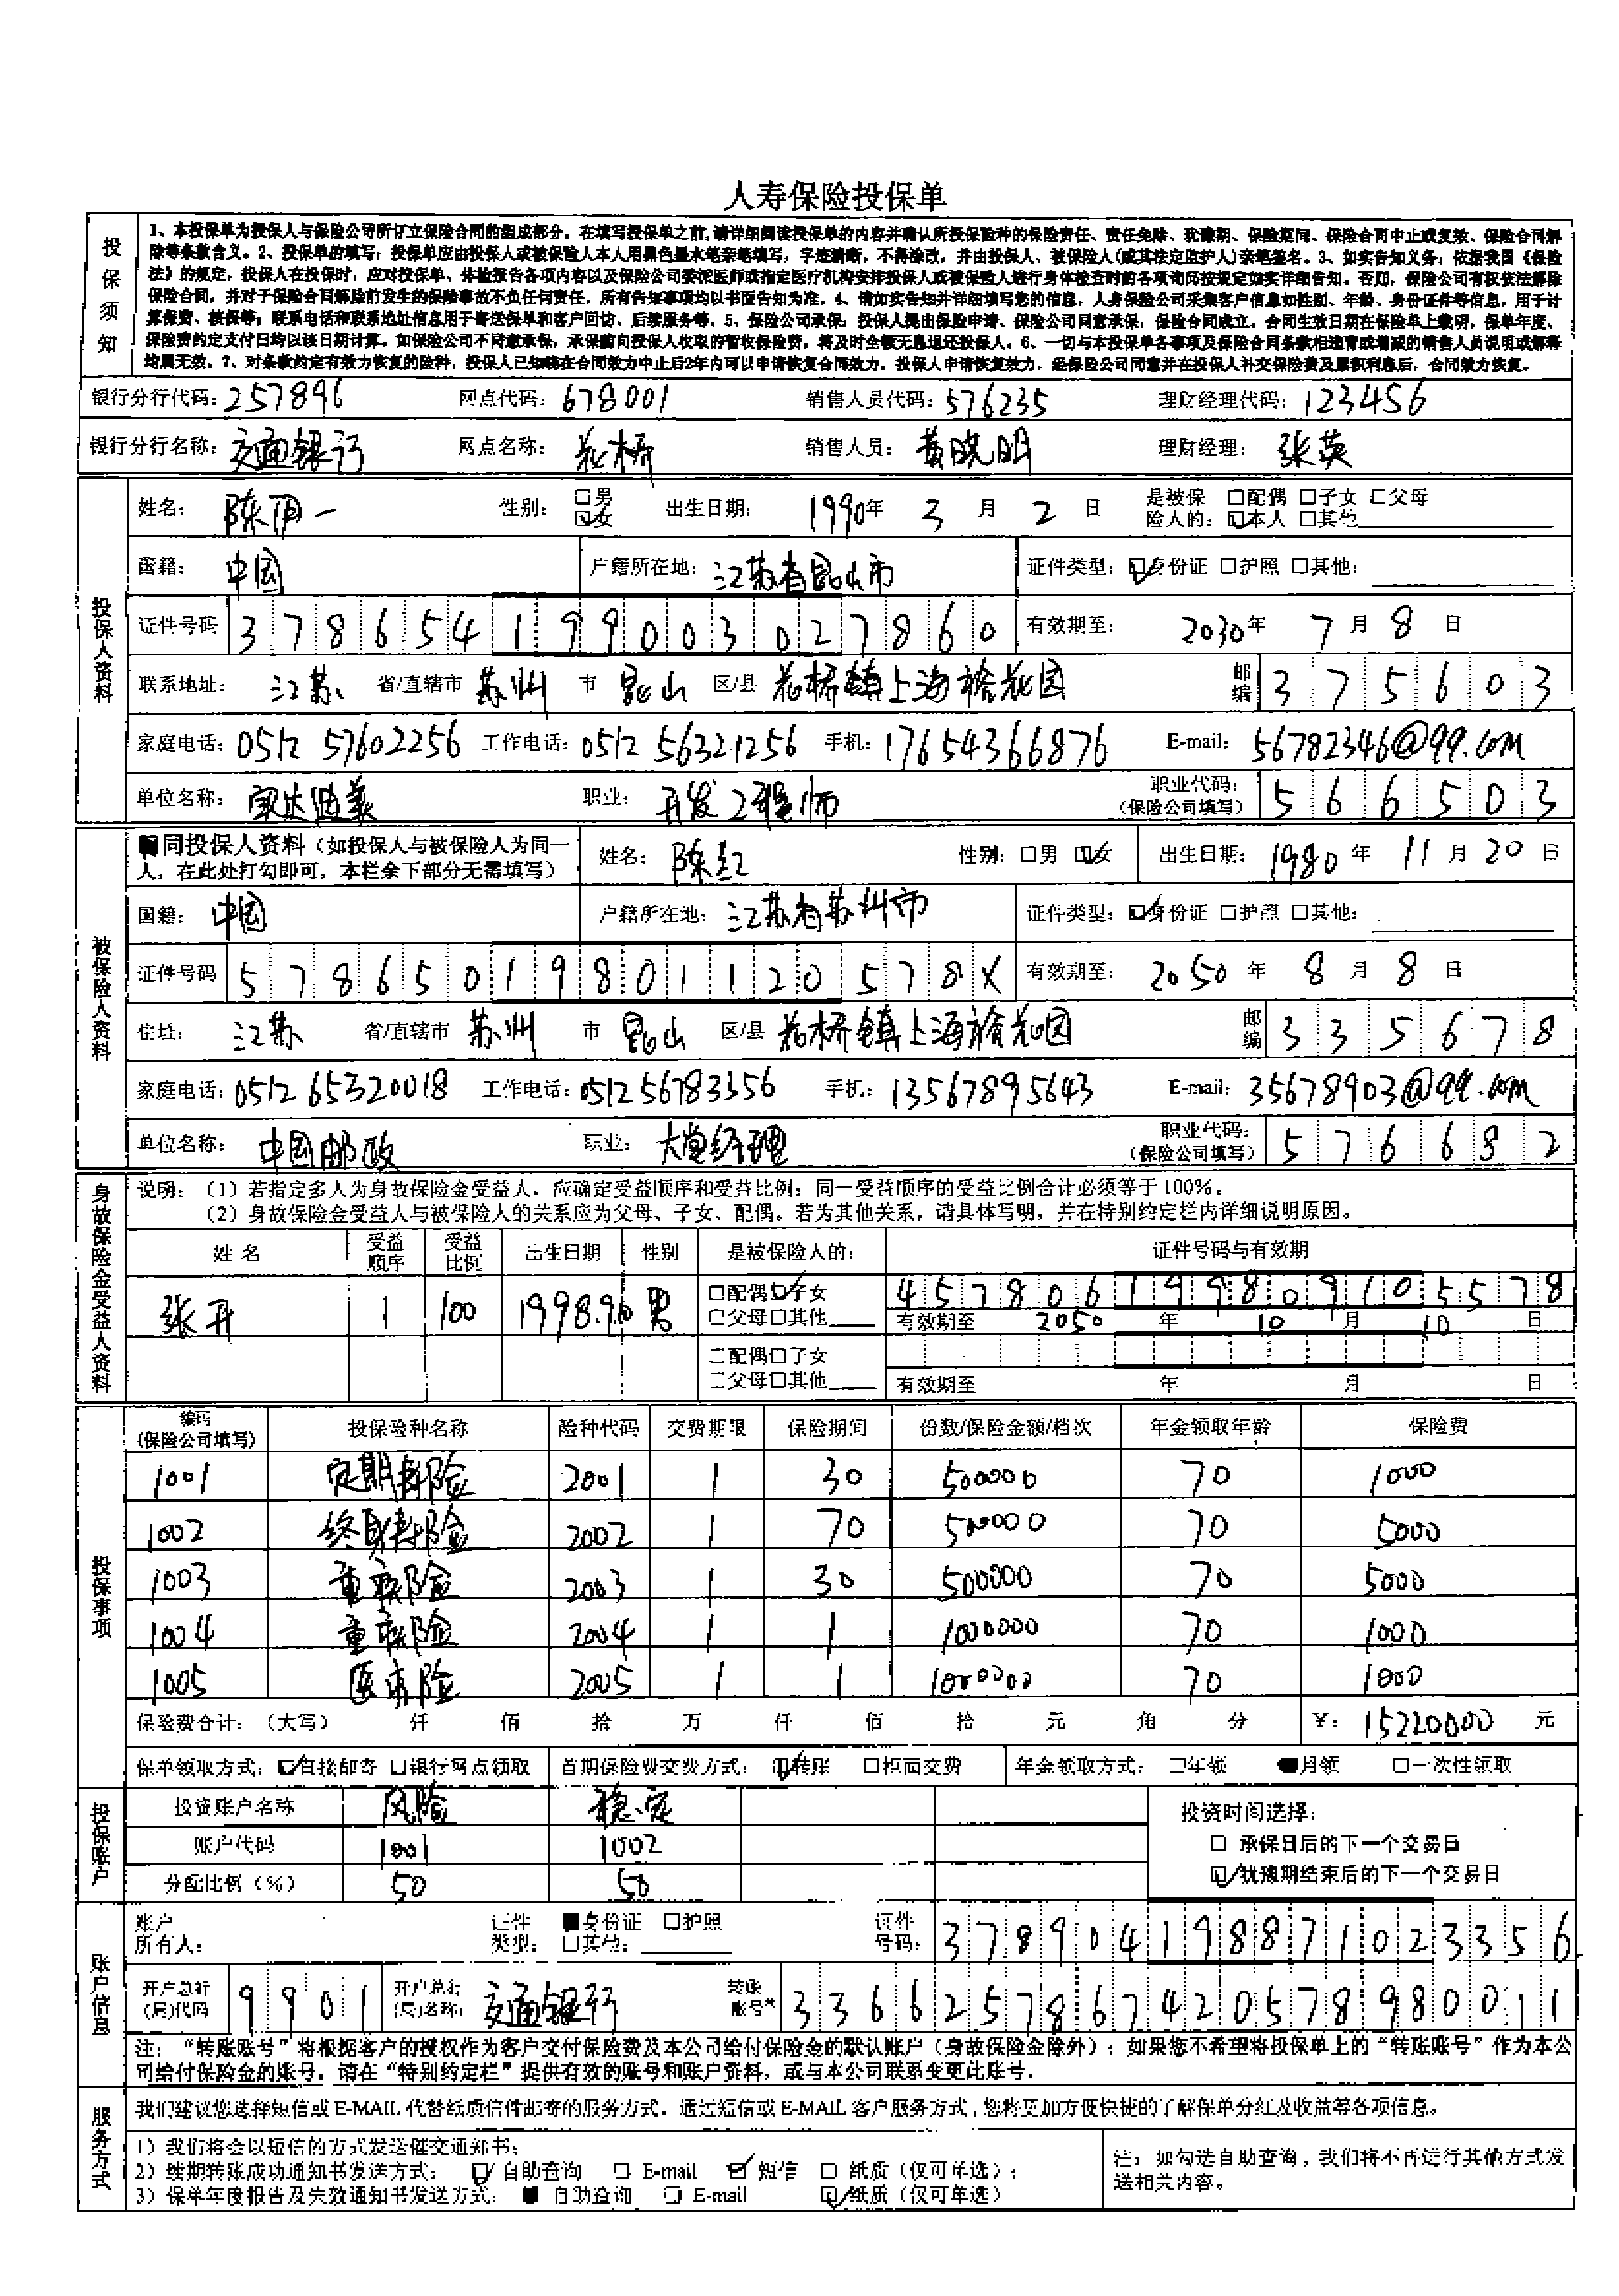 人寿保险投保单
投保须知
1、本投保单为投保人与保险公司所订立保险合同的组成部分。在填写投保单之前,请详细阅读投保单的内容并确认所投保险种的保险责任、责任免除、犹豫期、保险期间、保险合同中止或复效、保险合同解
除等条款含义。2、投保单的填写：投保单应由投保人或被保险人本人用黑色墨水笔亲笔填写，字迹清晰，不得涂改，并由投保人、被保险人(或其法定监护人)亲笔签名。3、如实告知义务：依据我国《保险
法》的规定，投保人在投保时，应对投保单、体检报告各项内容以及保险公司委派医师或指定医疗机构安排投保人或被保险人进行身体检查时的各项询问按规定如实详细告知。否则，保险公司有权依法解除
保险合同，并对于保险合同解除前发生的保险事故不负任何责任。所有告知事项均以书面告知为准。4、请如实告知并详细填写您的信息，人身保险公司采集客户信息如性别、年龄、身份证件等信息，用于计
算保费、核保等；联系电话和联系地址信息用于寄送保单和客户回访、后续服务等。5、保险公司承保：投保人提出保险申请、保险公司同意承保，保险合同成立。合同生效日期在保险单上载明，保单年度、
保险费约定支付日均以该日期计算。如保险公司不同意承保，承保前向投保人收取的暂收保险费，将及时全额无息退还投保人。6、一切与本投保单各事项及保险合同条款相违背或增减的销售人员说明或解释
均属无效。7、对条款约定有效力恢复的险种，投保人已知晓在合同效力中止后2年内可以申请恢复合同效力，投保人申请恢复效力，经保险公司同意并在投保人补交保险费及累积利息后，合同效力恢复。
银行分行代码：257896 网点代码：678001 销售人员代码：576235 理财经理代码：123456
银行分行名称：交通银行 网点名称：花桥 销售人员：黄晓明 理财经理：张英
投保人资料
姓名：陈丽一 性别：□男 ☑女 出生日期：1990年 3 月 2 日 是被保险人的：□配偶 □子女 □父母 ☑本人 □其他
国籍：中国 户籍所在地：江苏省昆山市 证件类型：☑身份证 □护照 □其他：
证件号码 378654199003027860 有效期至：2030年 7 月 8 日
联系地址：江苏 省/直辖市 苏州 市 昆山 区/县 花桥镇上海裕花园 邮编 375603
家庭电话：0512 57602256 工作电话：0512 56321256 手机：17654366876 E-mail：56782346@qq.com
单位名称：宝达佳美 职业：开发工程师 职业代码：（保险公司填写） 566503
被保险人资料
■同投保人资料（如投保人与被保险人为同一人，在此处打勾即可，本栏余下部分无需填写） 姓名：陈红 性别：□男 ☑女 出生日期：1980 年 11 月 20 日
国籍：中国 户籍所在地：江苏省苏州市 证件类型：☑身份证 □护照 □其他：
证件号码 57865019801120578X 有效期至：2050 年 8 月 8 日
住址：江苏 省/直辖市 苏州 市 昆山 区/县 花桥镇上海裕花园 邮编 335678
家庭电话：0512 65320018 工作电话：0512 56783356 手机：13567895643 E-mail：35678903@qq.com
单位名称：中国邮政 职业：大堂经理 职业代码：（保险公司填写） 576682
身故保险金受益人资料
说明：（1）若指定多人为身故保险金受益人，应确定受益顺序和受益比例；同一受益顺序的受益比例合计必须等于100%。
（2）身故保险金受益人与被保险人的关系应为父母、子女、配偶。若为其他关系，请具体写明，并在特别约定栏内详细说明原因。
姓 名 受益顺序 受益比例 出生日期 性别 是被保险人的： 证件号码与有效期
张开 1 100 1998.9.10 男 □配偶☑子女 □父母□其他 457806199809105578
有效期至 2050 年 10 月 10 日
□配偶□子女 □父母□其他
有效期至 年 月 日
投保事项
编码（保险公司填写） 投保险种名称 险种代码 交费期限 保险期间 份数/保险金额/档次 年金领取年龄 保险费
1001 定期寿险 2001 1 30 500000 70 1000
1002 终身寿险 2002 1 70 500000 70 5000
1003 重疾险 2003 1 30 500000 70 5000
1004 重疾险 2004 1 1 1000000 70 1000
1005 医疗险 2005 1 1 1000000 70 1000
保险费合计：（大写） 仟 佰 拾 万 仟 佰 拾 元 角 分 ￥：15220000 元
保单领取方式：☑直接邮寄 □银行网点领取 首期保险费交费方式：☑转账 □柜面交费 年金领取方式：□年领 ■月领 □一次性领取
投保账户
投资账户名称 风险 稳定 投资时间选择：
账户代码 1001 1002 □ 承保日后的下一个交易日
分配比例（%） 50 50 ☑犹豫期结束后的下一个交易日
账户信息
账户所有人： 证件类型：■身份证 □护照 □其他： 证件号码：378904198871023356
开户总行(局)代码 9901 开户总行(局)名称：交通银行 转账账号* 3366257867420578980011
注：“转账账号”将根据客户的授权作为客户交付保险费及本公司给付保险金的默认账户（身故保险金除外）；如果您不希望将投保单上的“转账账号”作为本公
司给付保险金的账号，请在“特别约定栏”提供有效的账号和账户资料，或与本公司联系变更此账号。
服务方式
我们建议您选择短信或E-MAIL代替纸质信件邮寄的服务方式。通过短信或E-MAIL客户服务方式，您将更加方便快捷的了解保单分红及收益等各项信息。
1）我们将会以短信的方式发送催交通知书；
2）续期转账成功通知书发送方式： ☑ 自助查询 □ E-mail ☑ 短信 □ 纸质（仅可单选）；
3）保单年度报告及失效通知书发送方式： ■ 自助查询 □ E-mail ☑纸质（仅可单选）
注：如勾选自助查询，我们将不再进行其他方式发
送相关内容。